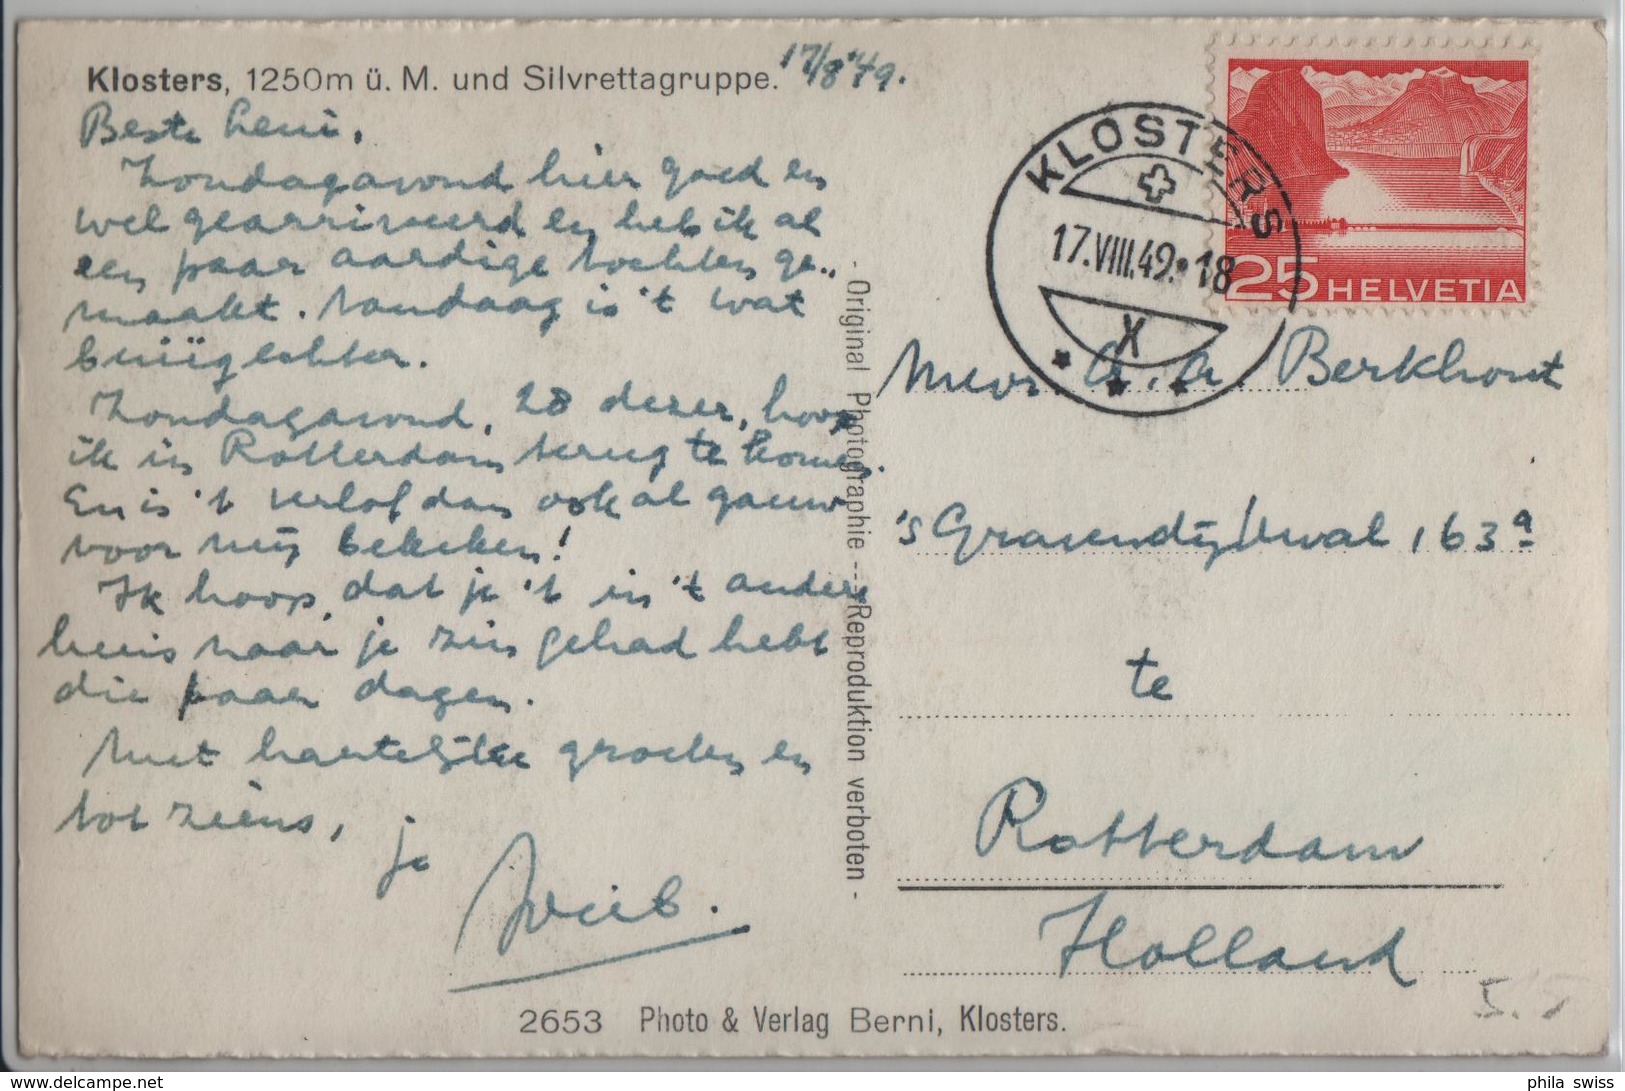 Klosters, 1250m ü. M. und Silvrettagruppe.
17/8 '49.
Beste Leni,
Zondagavond hier goed en
wel gearriveerd en heb ik al
een paar aardige tochten ge-
maakt. Vandaag is 't wat
buiïg echter.
Zondagavond, 28 dezer, hoop
ik in Rotterdam terug te komen.
En is 't verlof dan ook al gauw
voor mij bekeken!
Ik hoop dat je 't in 't andere
huis naar je zin gehad hebt
die paar dagen.
Met hartelijke groeten en
tot ziens,
je
Wieb.
2653 Photo & Verlag Berni, Klosters.
- Original Photographie --- Reproduktion verboten -
KLOSTERS
17.VIII.49.18
X
25 HELVETIA
Mevr. A. A. Berkhout
's Gravendijkwal 163a
te
Rotterdam
Holland
phila swiss
www.delcampe.net